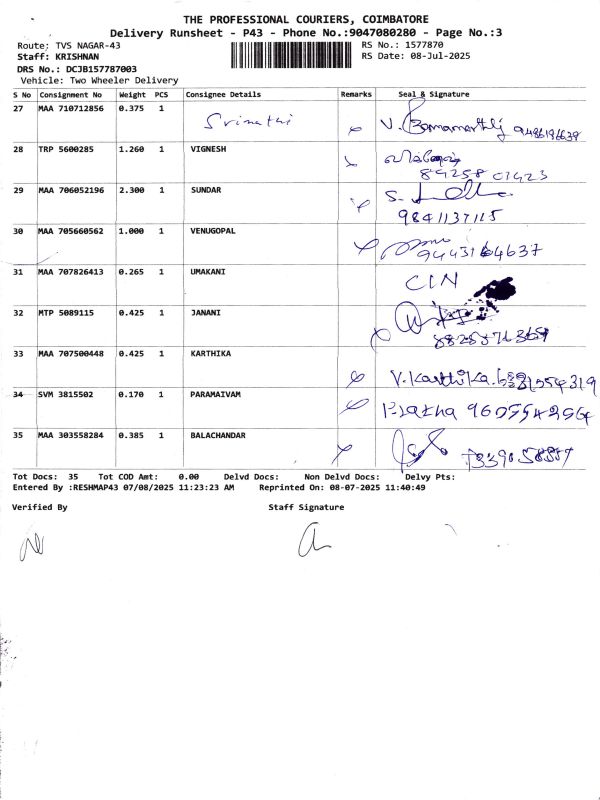 THE PROFESSIONAL COURIERS, COIMBATORE
Delivery Runsheet - P43 - Phone No.:9047080280 - Page No.:3
Route: TVS NAGAR-43 RS No.: 1577870
Staff: KRISHNAN RS Date: 08-Jul-2025
DRS No.: DCJB157787003
Vehicle: Two Wheeler Delivery
S No Consignment No Weight PCS Consignee Details Remarks Seal & Signature
27 MAA 710712856 0.375 1 Srimathi V. 9486196639
28 TRP 5600285 1.260 1 VIGNESH
89258 01423
29 MAA 706052196 2.300 1 SUNDAR S.
9841137115
30 MAA 705660562 1.000 1 VENUGOPAL
9443164637
31 MAA 707826413 0.265 1 UMAKANI CIN
32 MTP 5089115 0.425 1 JANANI
33 MAA 707500448 0.425 1 KARTHIKA V.Karthika.
34 SVM 3815502 0.170 1 PARAMAIVAM
35 MAA 303558284 0.385 1 BALACHANDAR
Tot Docs: 35 Tot COD Amt: 0.00 Delvd Docs: Non Delvd Docs: Delvy Pts:
Entered By :RESHMAP43 07/08/2025 11:23:23 AM Reprinted On: 08-07-2025 11:40:49
Verified By Staff Signature